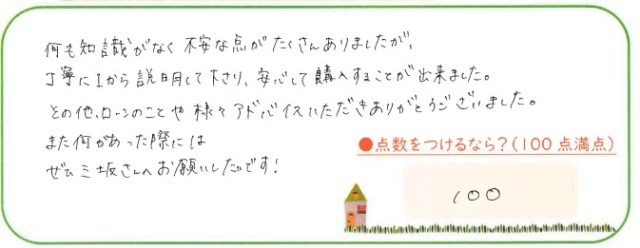 何も知識がなく不安な点がたくさんありましたが、
丁寧に1から説明して下さり、安心して購入することが出来ました。
その他、ローンのことや様々アドバイスいただきありがとうございました。
また何かあった際には
ぜひ三坂さんへお願いしたいです!
●点数をつけるなら?(100点満点)
100